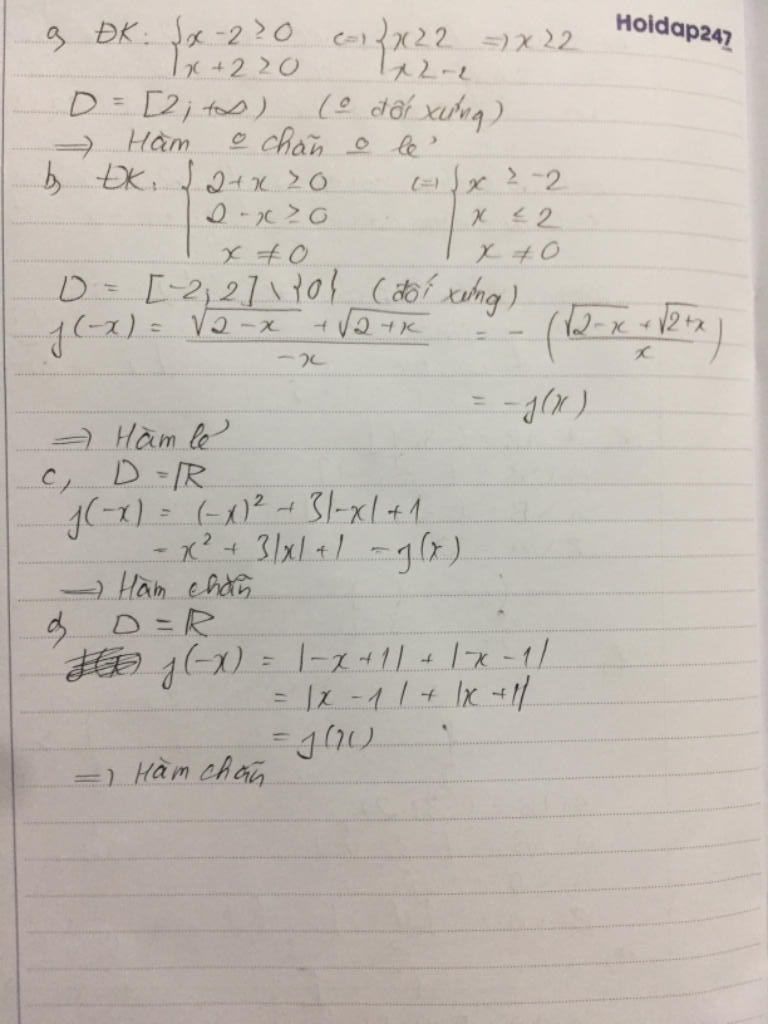 Hoidap247
a, ĐK: { x - 2 ≥ 0 <=> { x ≥ 2 => x ≥ 2
x + 2 ≥ 0 x ≥ -2
D = [2; +∞) (o đối xứng)
=> Hàm o chẵn o lẻ
b, ĐK: { 2 + x ≥ 0 <=> { x ≥ -2
2 - x ≥ 0 x ≤ 2
x ≠ 0 x ≠ 0
D = [-2; 2] \ {0} (đối xứng)
f(-x) = (√(2-x) + √(2+x)) / (-x) = - ((√(2-x) + √(2+x)) / x)
= -f(x)
=> Hàm lẻ
c, D = ℝ
f(-x) = (-x)² + 3|-x| + 1
= x² + 3|x| + 1 = f(x)
=> Hàm chẵn
d, D = ℝ
f(-x) = |-x + 1| + |-x - 1|
= |x - 1| + |x + 1|
= f(x)
=> Hàm chẵn